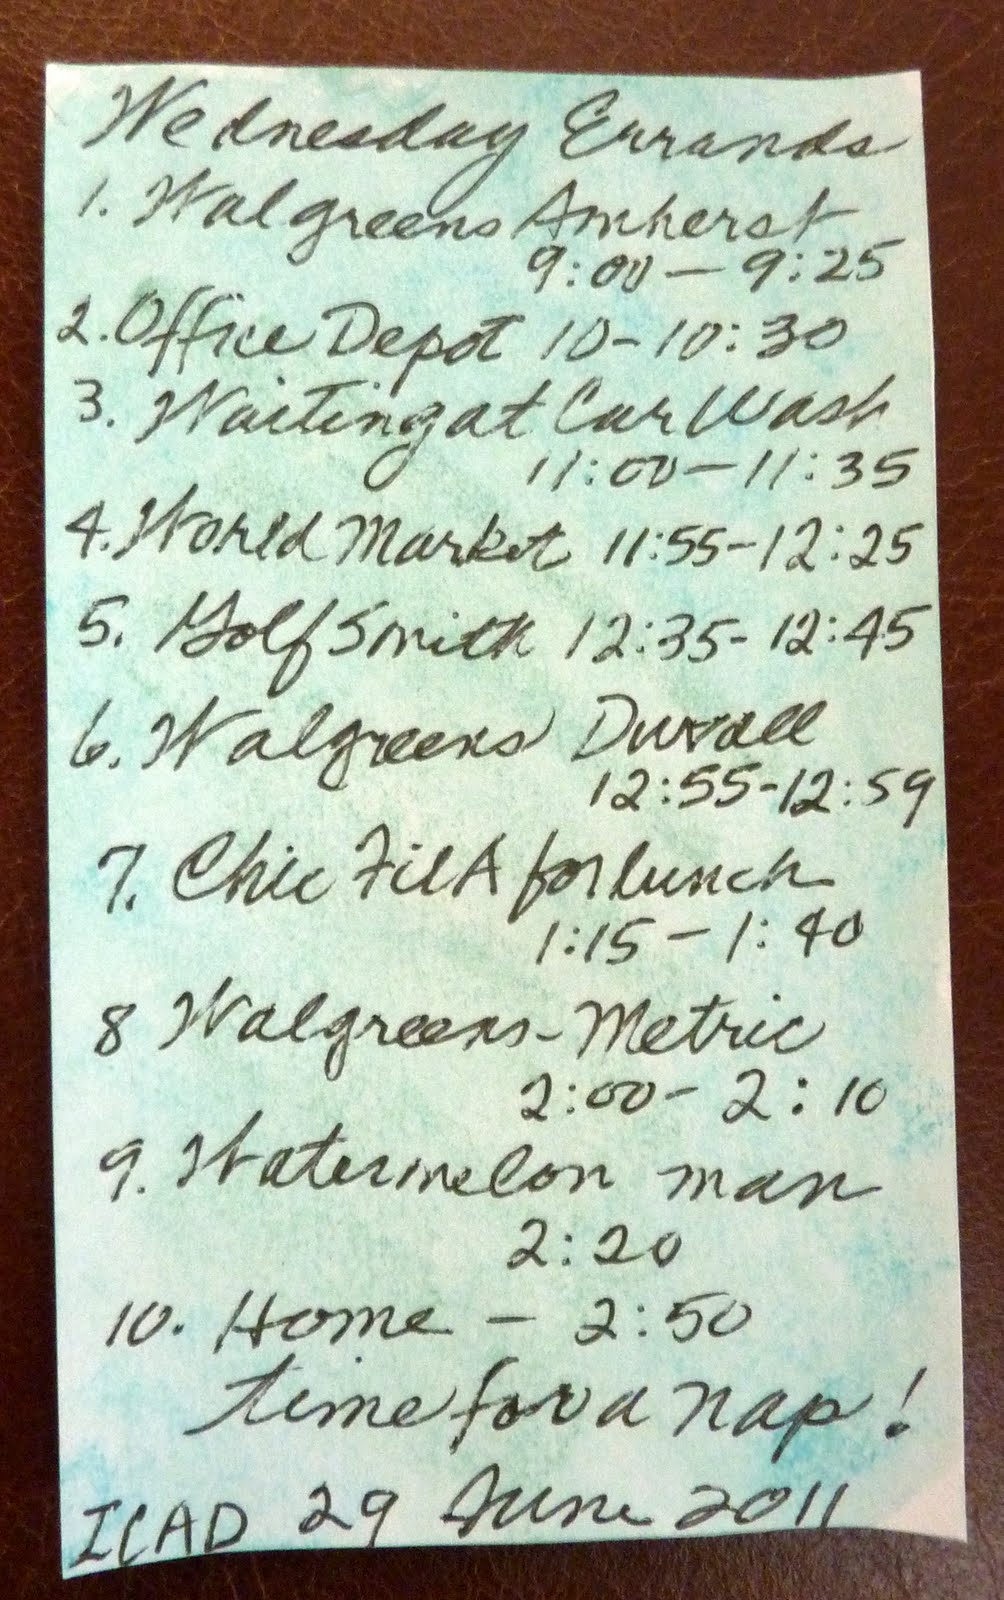 Wednesday Errands
1. Walgreens Amherst
9:00 – 9:25
2. Office Depot 10-10:30
3. Waiting at Car Wash
11:00 – 11:35
4. World Market 11:55-12:25
5. Golf Smith 12:35-12:45
6. Walgreens Duvall
12:55-12:59
7. Chic Fil A for lunch
1:15 – 1:40
8 Walgreens-Metric
2:00- 2:10
9. Watermelon man
2:20
10. Home – 2:50
time for a nap!
ICAD 29 June 2011